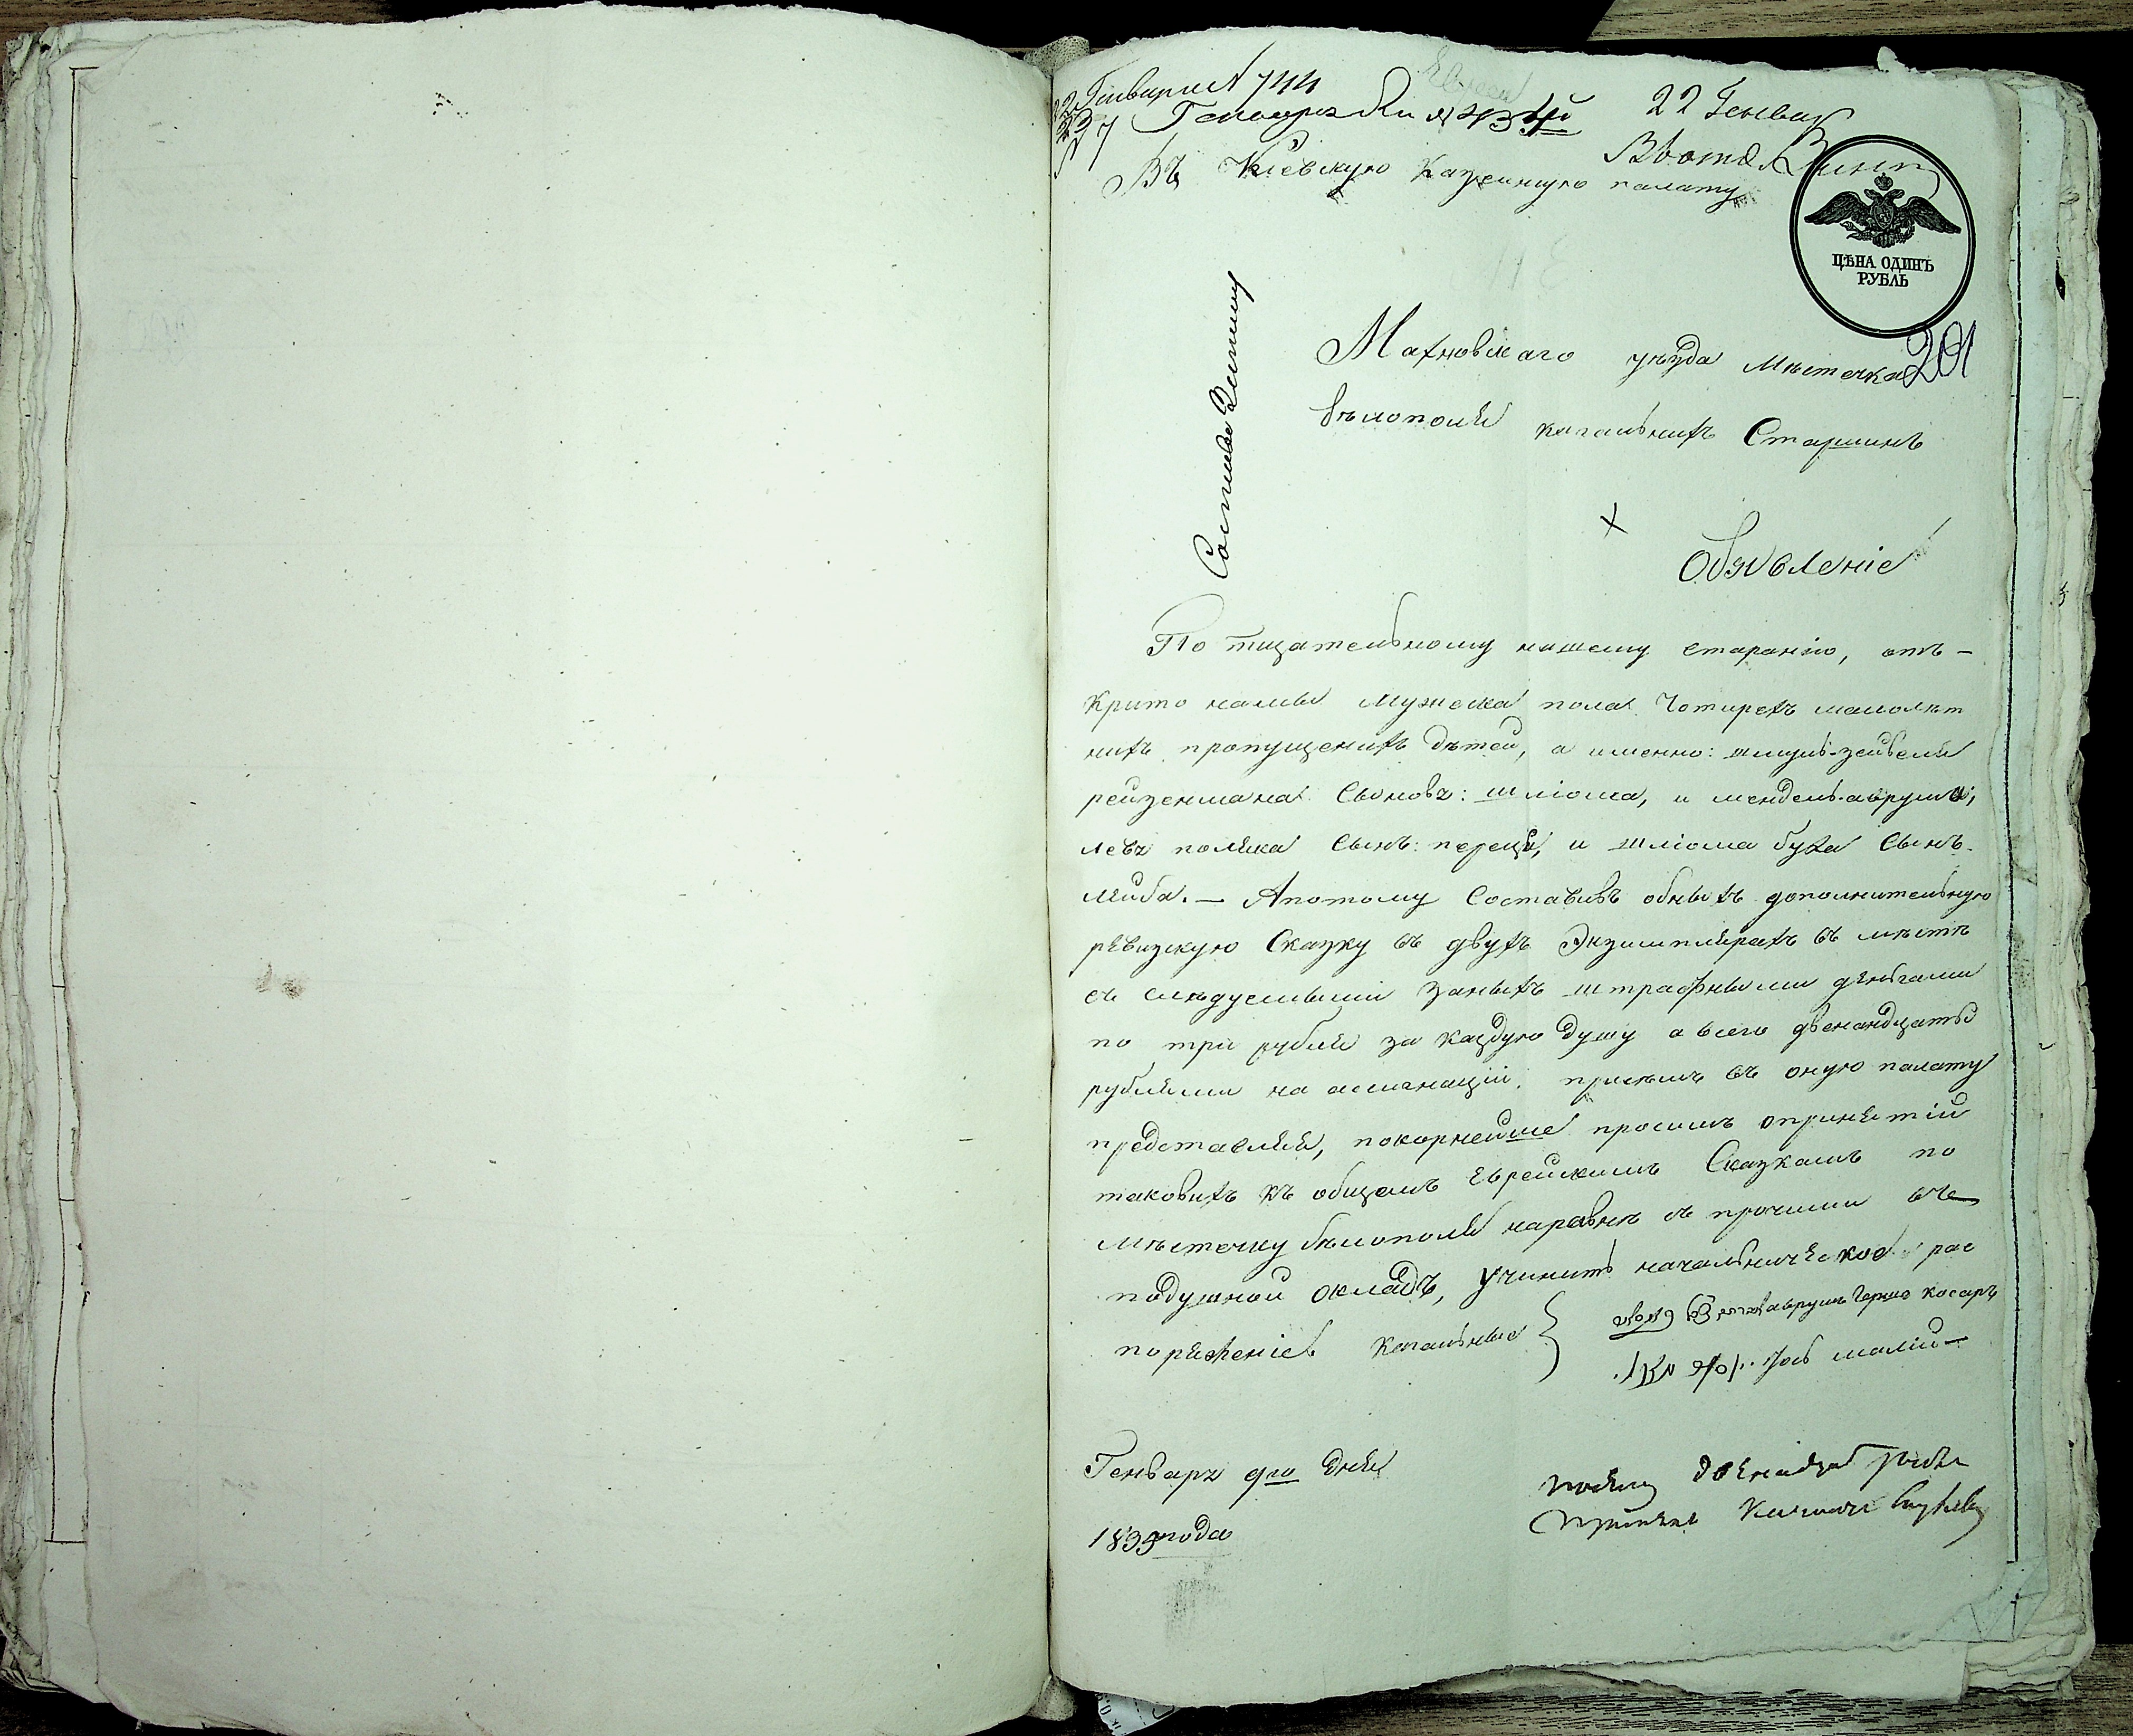 Генваря № 744
22 Генвар
Въ Кіевскую Казенную палату
ЦѢНА ОДИНЪ
РУБЛЬ
201
Махновскаго уѣзда Мѣстечка
бѣлополя кагальнихъ Старшинъ
Обявленіе
По тщательному нашему старанію, отъ-
крито нами мужеска пола Чотирехъ малолѣт
нихъ пропущенихъ дѣтей, а именно: шмуль-зейвеля
рейзенмана Сыновъ: шліома, и мендель-аврума,
левъ поляка Сынъ: перецъ, и шліома буха Сынъ
лейба. — Апотому Составивъ обныхъ дополнительную
ревизкую Сказку въ двухъ Экземплярахъ въ мѣстѣ
съ слѣдуемыми заныхъ штрафными деньгами
по три рубля за каждую душу а всего двенандцать
рублями на асигнаціи. присемъ въ оную палату
представляя, покорнейше просимъ опринятіи
таковихъ къ общемъ Еврейскимъ Сказкамъ по
мѣстечку бѣлополя наравнѣ съ прочими въ
подушной окладъ, учинить начальническое рас
поряженіе Кагальные
аврумъ Гершко косаръ
Іось малій
Генваря 9го дня
183 года